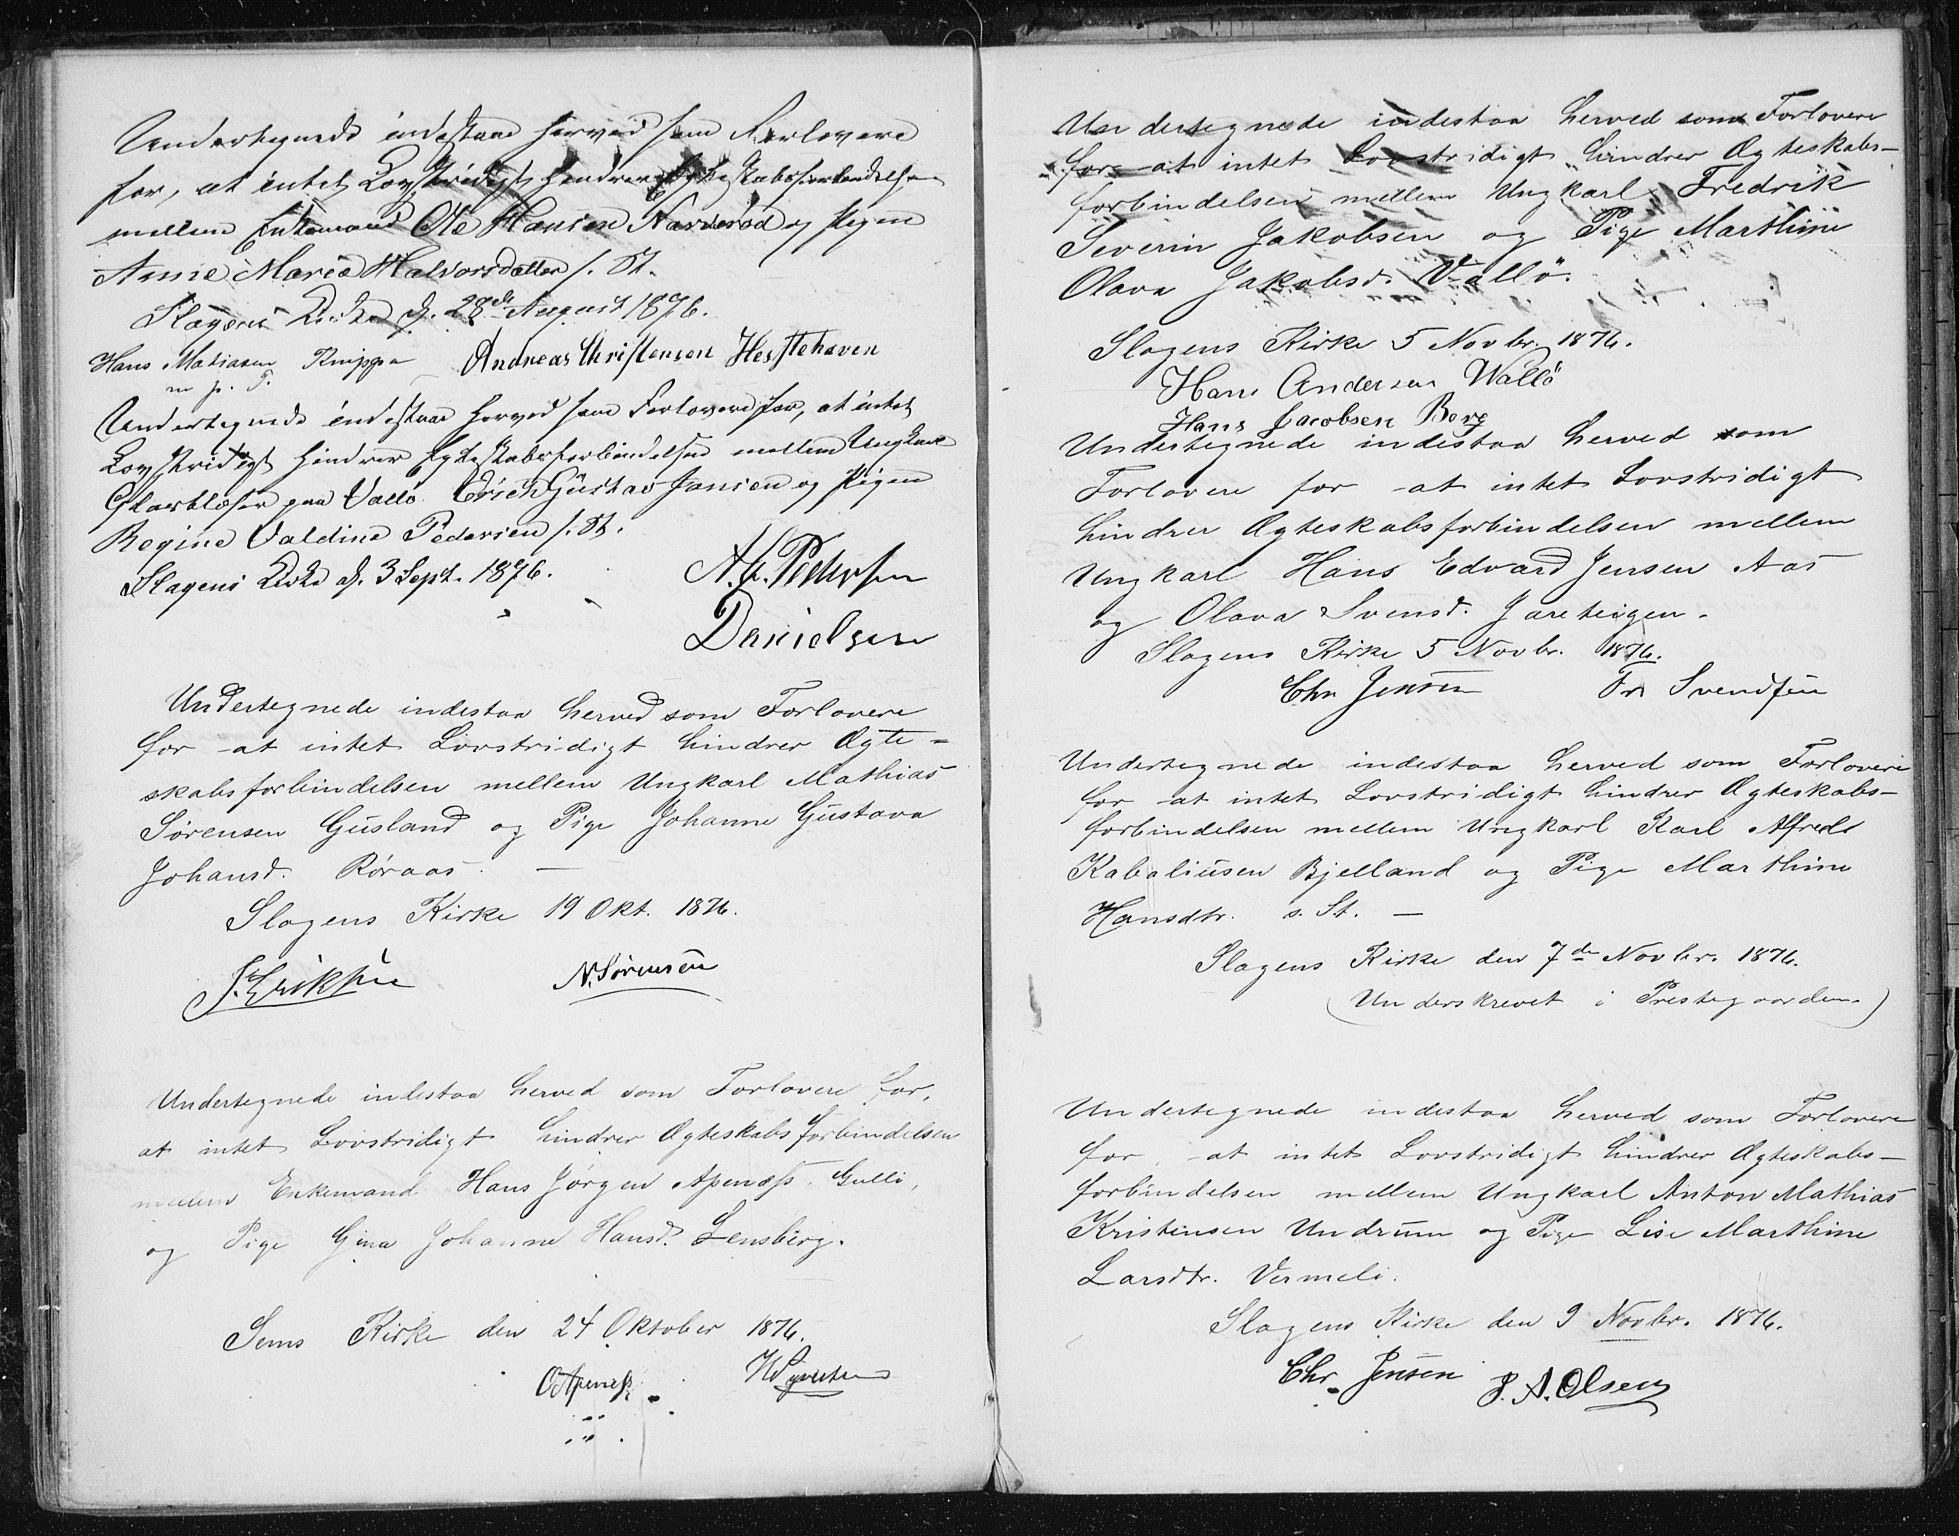 Undertegnede indestaae herved som Forlovere
for, at intet Lovstridigt hindrer Egteskabsforbindelsen
mellem Enkemand Ole Hansen Narverød og Pigen
Anne Maria Halvorsdatter s. St.
Slagens Kirke d. 28de August 1876.
Hans Matiasen Knippa Andreas Christensen Hesthehaven
m p. F.
Undertegnede indestaae herved som Forlovere for, at intet
Lovstridigt hindrer Egteskabsforbindelsen mellem Ungkarl
Glasblæser paa Vallø Erich Gustav Jansen og Pigen
Regine Valdine Pedersen s. St.
Slagens Kirke d. 3 Sept. 1876.
A. G. Pedersen
Danielsen
Undertegnede indestaa herved som Forlovere
for at intet Lovstridigt hindrer Ægte-
skabsforbindelsen mellem Ungkarl Mathias
Sørensen Gusland og Pige Johanne Gustava
Johansd. Røraas. —
Slagens Kirke 19 Okt. 1876.
J. Eriksen N. Sørensen
Undertegnede indestaa herved som Forlovere for,
at intet Lovstridigt hindrer Ægteskabsforbindelsen
mellem Enkemand Hans Jørgen Apenæss. Gulli,
og Pige Gina Johanne Hansd. Lensberg.
Sems Kirke den 24 Oktober 1876.
O Apeness H Syvertsen
Undertegnede indestaa herved som Forlovere
for at intet Lovstridigt hindrer Ægteskabs-
forbindelsen mellem Ungkarl Fredrik
Severin Jakobsen og Pige Marthine
Olava Jakobsd. Vallø.
Slagens Kirke 5 Novbr. 1876.
Hans Andersen Wallö
Hans Jacobsen Berg
Undertegnede indestaa herved som
Forlovere for at intet Lovstridigt
hindrer Ægteskabsforbindelsen mellem
Ungkarl Hans Edvard Jensen Aas
og Olava Svensd. Jareteigen.
Slagens Kirke 5 Novbr. 1876.
Chr Jensen Fr Svendsen
Undertegnede indestaa herved som Forlovere
for at intet Lovstridigt hindrer Ægteskabs-
forbindelsen mellem Ungkarl Karl Alfred
Kabaliusen Bjelland og Pige Marthine
Hansdtr. s. St. —
Slagens Kirke den 7de Novbr. 1876.
(Underskrevet i Prestegaarden.)
Undertegnede indestaa herved som Forlovere
for, at intet Lovstridigt hindrer Ægteskabs-
forbindelsen mellem Ungkarl Anton Mathias
Kristensen Undrum og Pige Lise Marthine
Larsdtr. Vermeli.
Slagens Kirke den 9 Novbr. 1876.
Chr Jensen J. A. Olsen